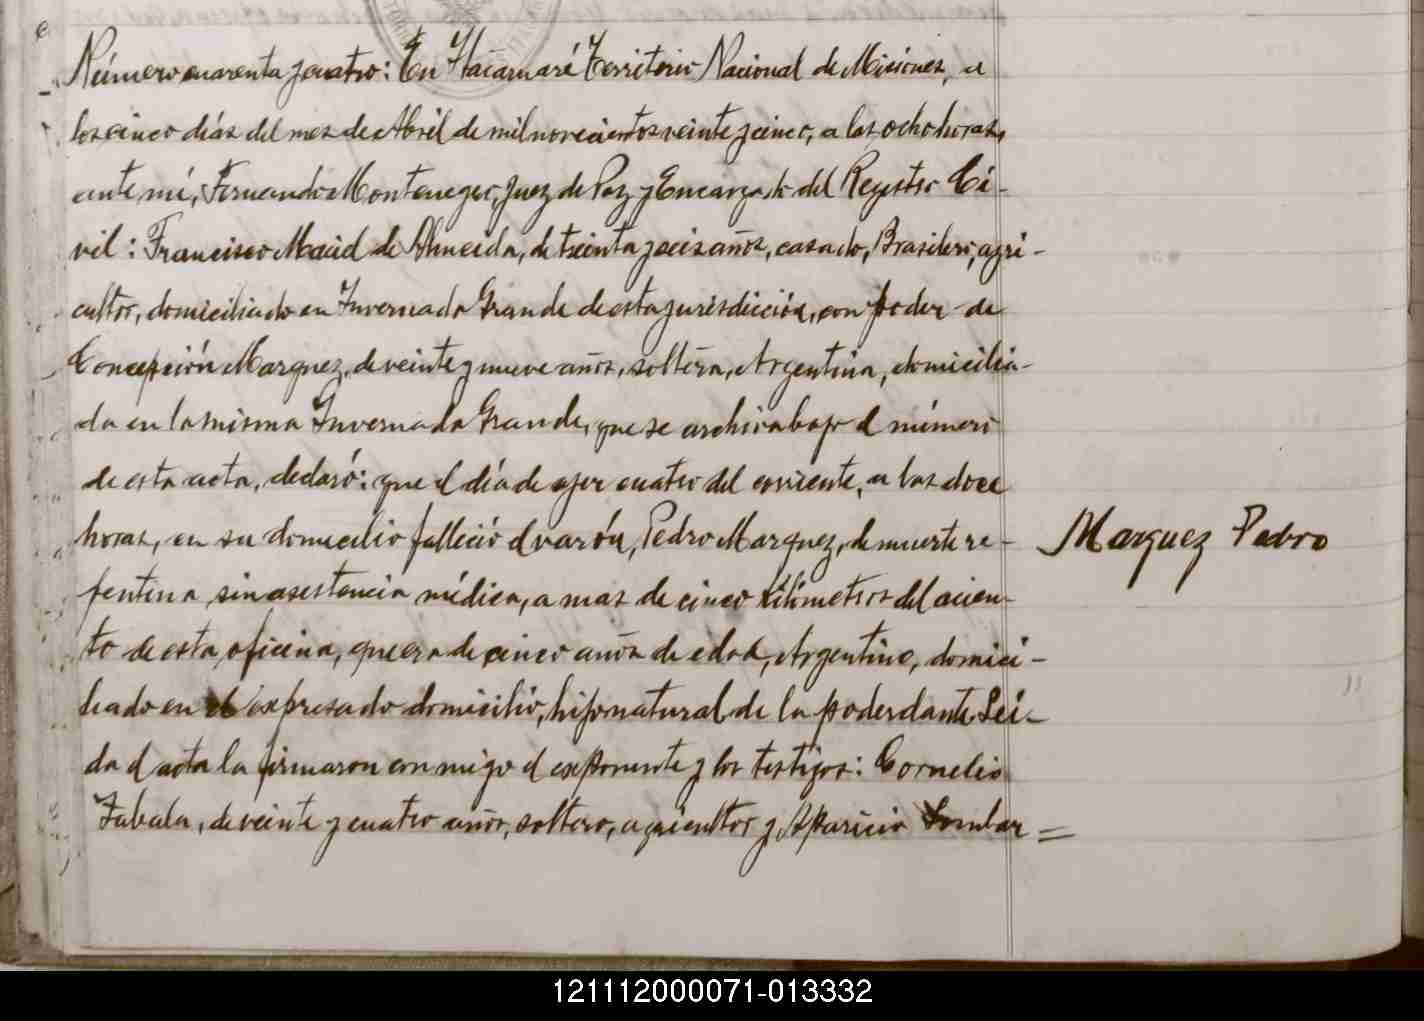 Número cuarenta y cuatro: En Itacaruaré Territorio Nacional de Misiones, a
los cinco días del mes de Abril de mil novecientos veinte y cinco, a las ocho horas,
ante mí, Fernando Montenegro, Juez de Paz y Encargado del Registro Ci-
vil: Francisco Maciel de Almeida, de treinta y seis años, casado, Brasilero, agri-
cultor, domiciliado en Invernada Grande de esta jurisdicción, con poder de
Concepción Marquez, de veinte y nueve años, soltera, Argentina, domicilia-
da en la misma Invernada Grande, que se archiva bajo el número
de esta acta, declaró: que el día de ayer cuatro del corriente, a las doce
horas, en su domicilio falleció el varón, Pedro Marquez, de muerte re-
pentina sin asistencia médica, a mas de cinco kilómetros del acien-
to de esta oficina, que era de cinco años de edad, Argentino, domici-
liado en el expresado domicilio, hijo natural de la poderdante. Leí-
da el acta la firmaron conmigo el exponente y los testigos: Cornelio
Zabala, de veinte y cuatro años, soltero, agricultor y Aparicio Lombar=
Marquez Pedro
121112000071-013332